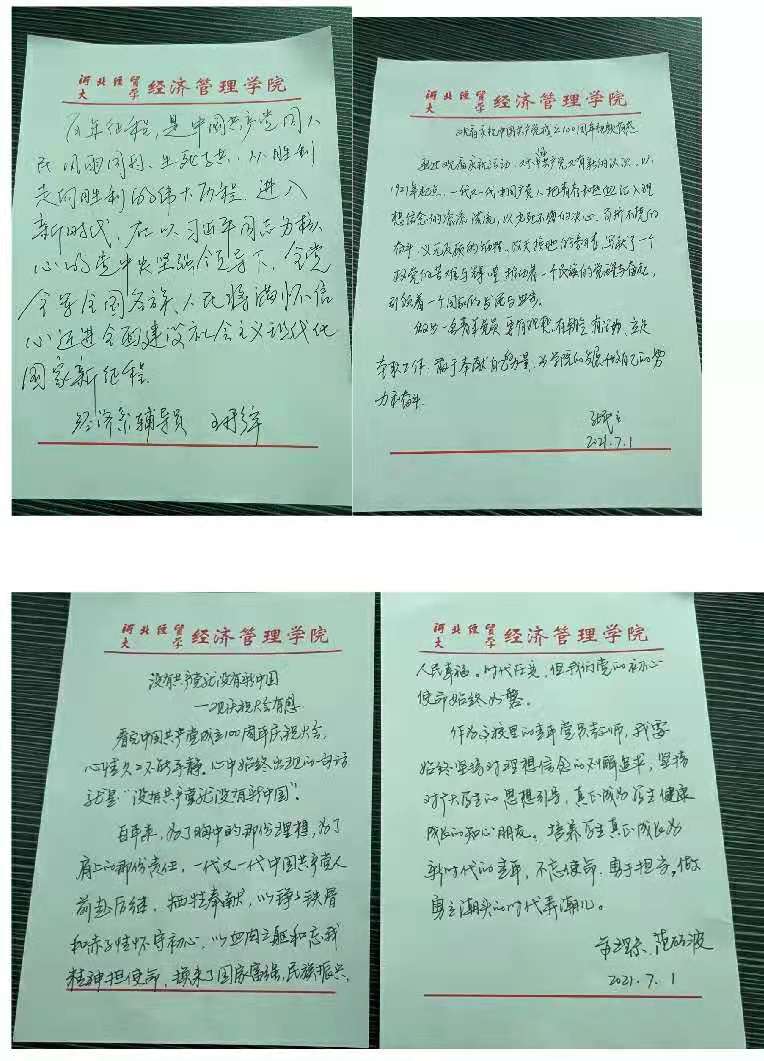 河北经贸大学 经济管理学院
百年征程,是中国共产党同人
民风雨同舟、生死与共、从胜利
走向胜利的伟大历程。进入
新时代,在以习近平同志为核
心的党中央坚强领导下,全党
全军全国各族人民将满怀信
心迈进全面建设社会主义现代化
国家新征程。
经济系辅导员
河北经贸大学 经济管理学院
观看庆祝中国共产党成立100周年
通过观看庆祝活动,对中国共产党又有新的认识,以
1921年起点,一代又一代中国共产党人抱着
想信念的 以 的决心、百折不挠的
奋斗、义无反顾的 写就了一个
政党的苦难与辉煌,推动着一个民族的觉醒与奋起,
引领着一个国家的
做为一名青年党员 立足
本职工作,敢于奉献自己力量,为学院的发展付出自己的努
力和奋斗。
2021.7.1
河北经贸大学 经济管理学院
没有共产党就没有新中国
——观庆祝大会有感
看完中国共产党成立100周年庆祝大会,
心情久久不能平静。心中始终出现的一句话
就是“没有共产党就没有新中国”。
百年来,为了胸中的那份理想,为了
肩上的那份责任,一代又一代中国共产党人
前赴后继,牺牲奉献,以铮铮铁骨
和赤子情怀守初心,以血肉之躯和忘我
精神担使命,换来了国家富强,民族振兴,
河北经贸大学 经济管理学院
人民幸福。时代在变,但我们党的初心
使命始终如磐。
作为高校里的青年党员教师,我要
始终坚持对理想信念的 追求,坚持
对广大学生的思想引导,真正成为学生健康
成长的知心朋友。培养学生真正成长为
新时代的青年,不忘使命,勇于担当,做
勇立潮头的时代弄潮儿。
管理系 范
2021.7.1